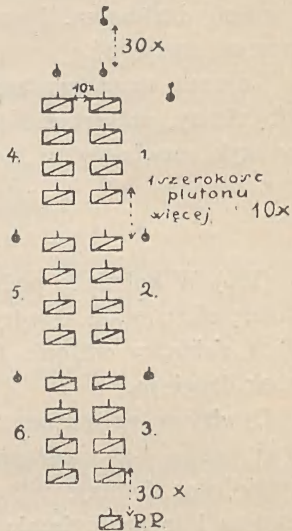 30 x
10x
4.
1.
1 szerokość
plutonu
więcej 10x
5.
2.
6.
3.
30 x
P.P.